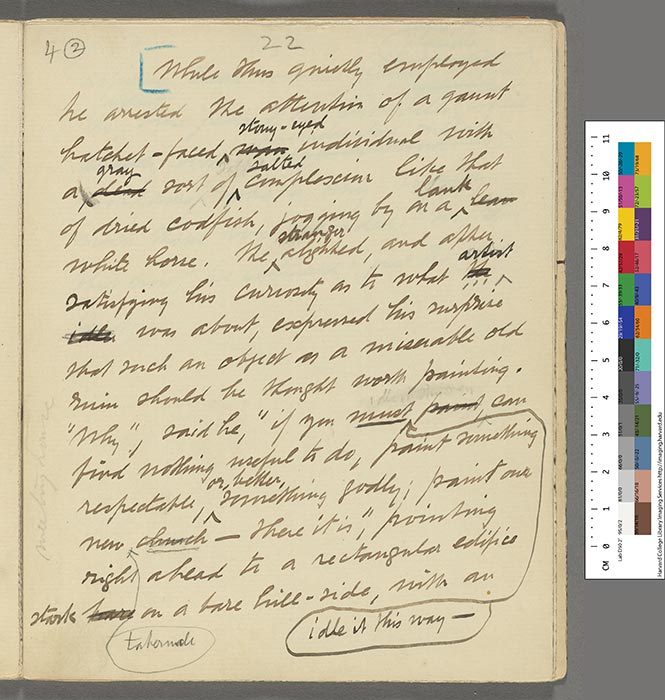 4 ② 22
[While thus quietly employed
he arrested the attention of a gaunt
stony-eyed
hatchet-faced, man individual with
gray salted
a dead sort of complexion like that
lank
of dried codfish, jogging by on a lean
stranger
white horse. The alighted and after
artist
satisfying his curiosity as to what the
idler was about, expressed his surprise
that such an object as a miserable old
ruin should be thought worth painting.
"Why", said he, "if you must paint, can
find nothing useful to do, paint something
or, better,
respectable, something godly; paint our
new church — there it is", pointing
right ahead to a rectangular edifice
stark bare on a bare hill-side, with an
tabernacle
idle it this way —
CM 0 1 2 3 4 5 6 7 8 9 10 11
Harvard College Library Imaging Services http://imaging.harvard.edu